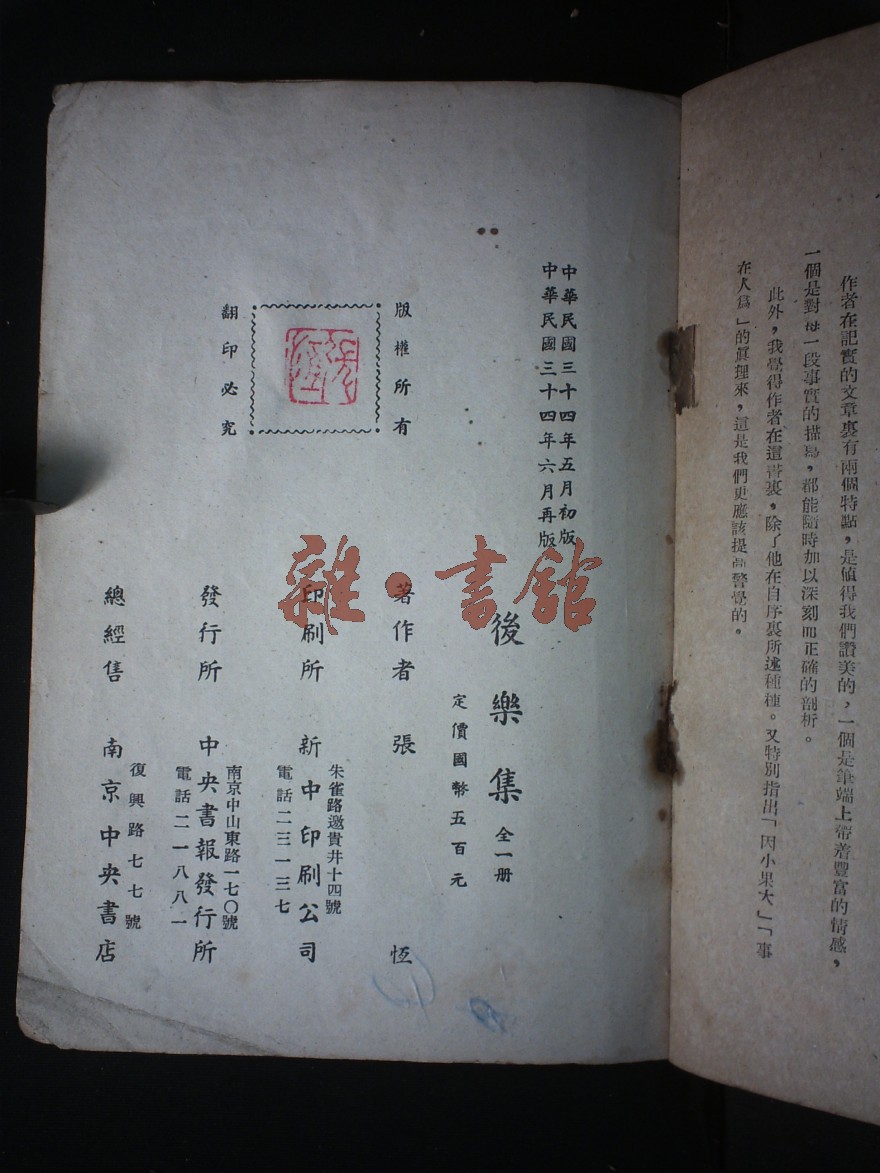 作者在記實的文章裏有兩個特點，是値得我們讚美的，一個是筆端上帶着豐富的情感，
一個是對每一段事實的描寫，都能隨時加以深刻而正確的剖析。
此外，我覺得作者在這書裏，除了他在自序裏所述種種。又特別指出「因小果大」「事
在人爲」的眞理來，這是我們更應該提高警覺的。
中華民國三十四年五月初版
中華民國三十四年六月再版
後樂集 全一册
定價國幣五百元
版權所有
翻印必究
著作者 張恆
印刷所 新中印刷公司
朱雀路邀貴井十四號
電話二三一三七
發行所 中央書報發行所
南京中山東路一七〇號
電話二一八八一
總經售 南京中央書店
復興路七七號
雜·書館